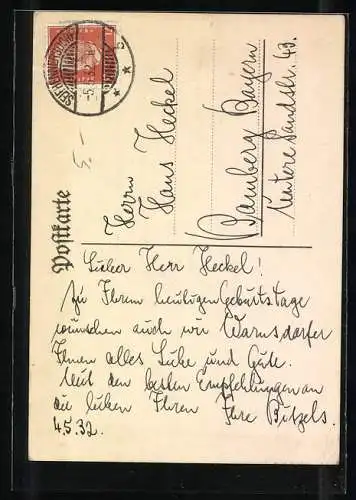 Postkarte
Herrn
Hans Heckel
Bamberg Bayern
Untere Sandstr. 43.
5.–
Lieber Herr Heckel!
Zu Ihrem heutigen Geburtstage
wünschen auch wir Warnsdorfer
Ihnen alles Liebe und Gute.
Mit den besten Empfehlungen an
die lieben Ihren Ihre Bitzels.
4.5.32.